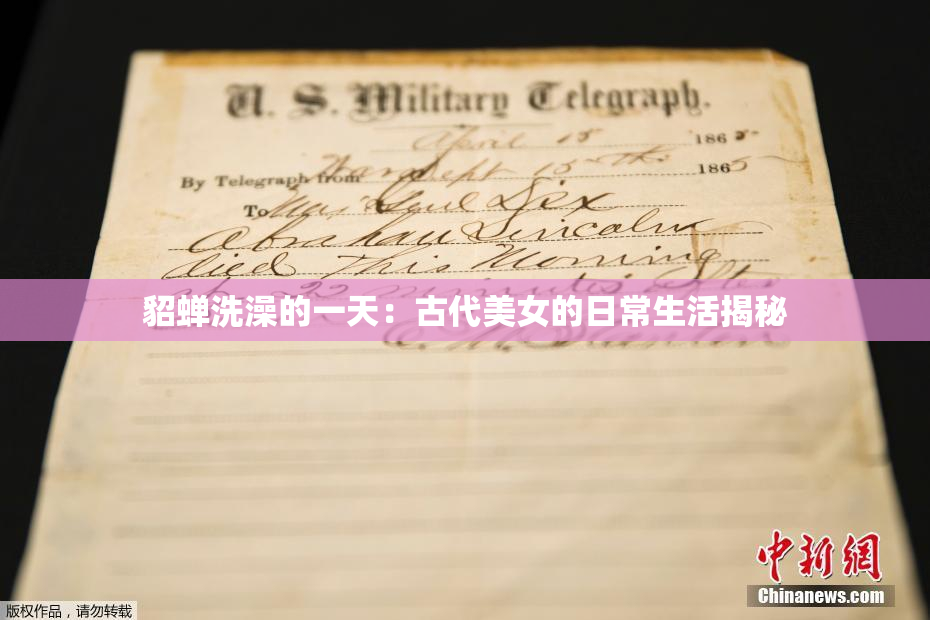 U. S. Military Telegraph.
April 15 1865
By Telegraph from War Dept 15th 1865
To Maj Genl Dix
Abraham Lincoln
died This Morning
at 22 minutes after
貂蝉洗澡的一天：古代美女的日常生活揭秘
中新网
Chinanews.com
版权作品，请勿转载